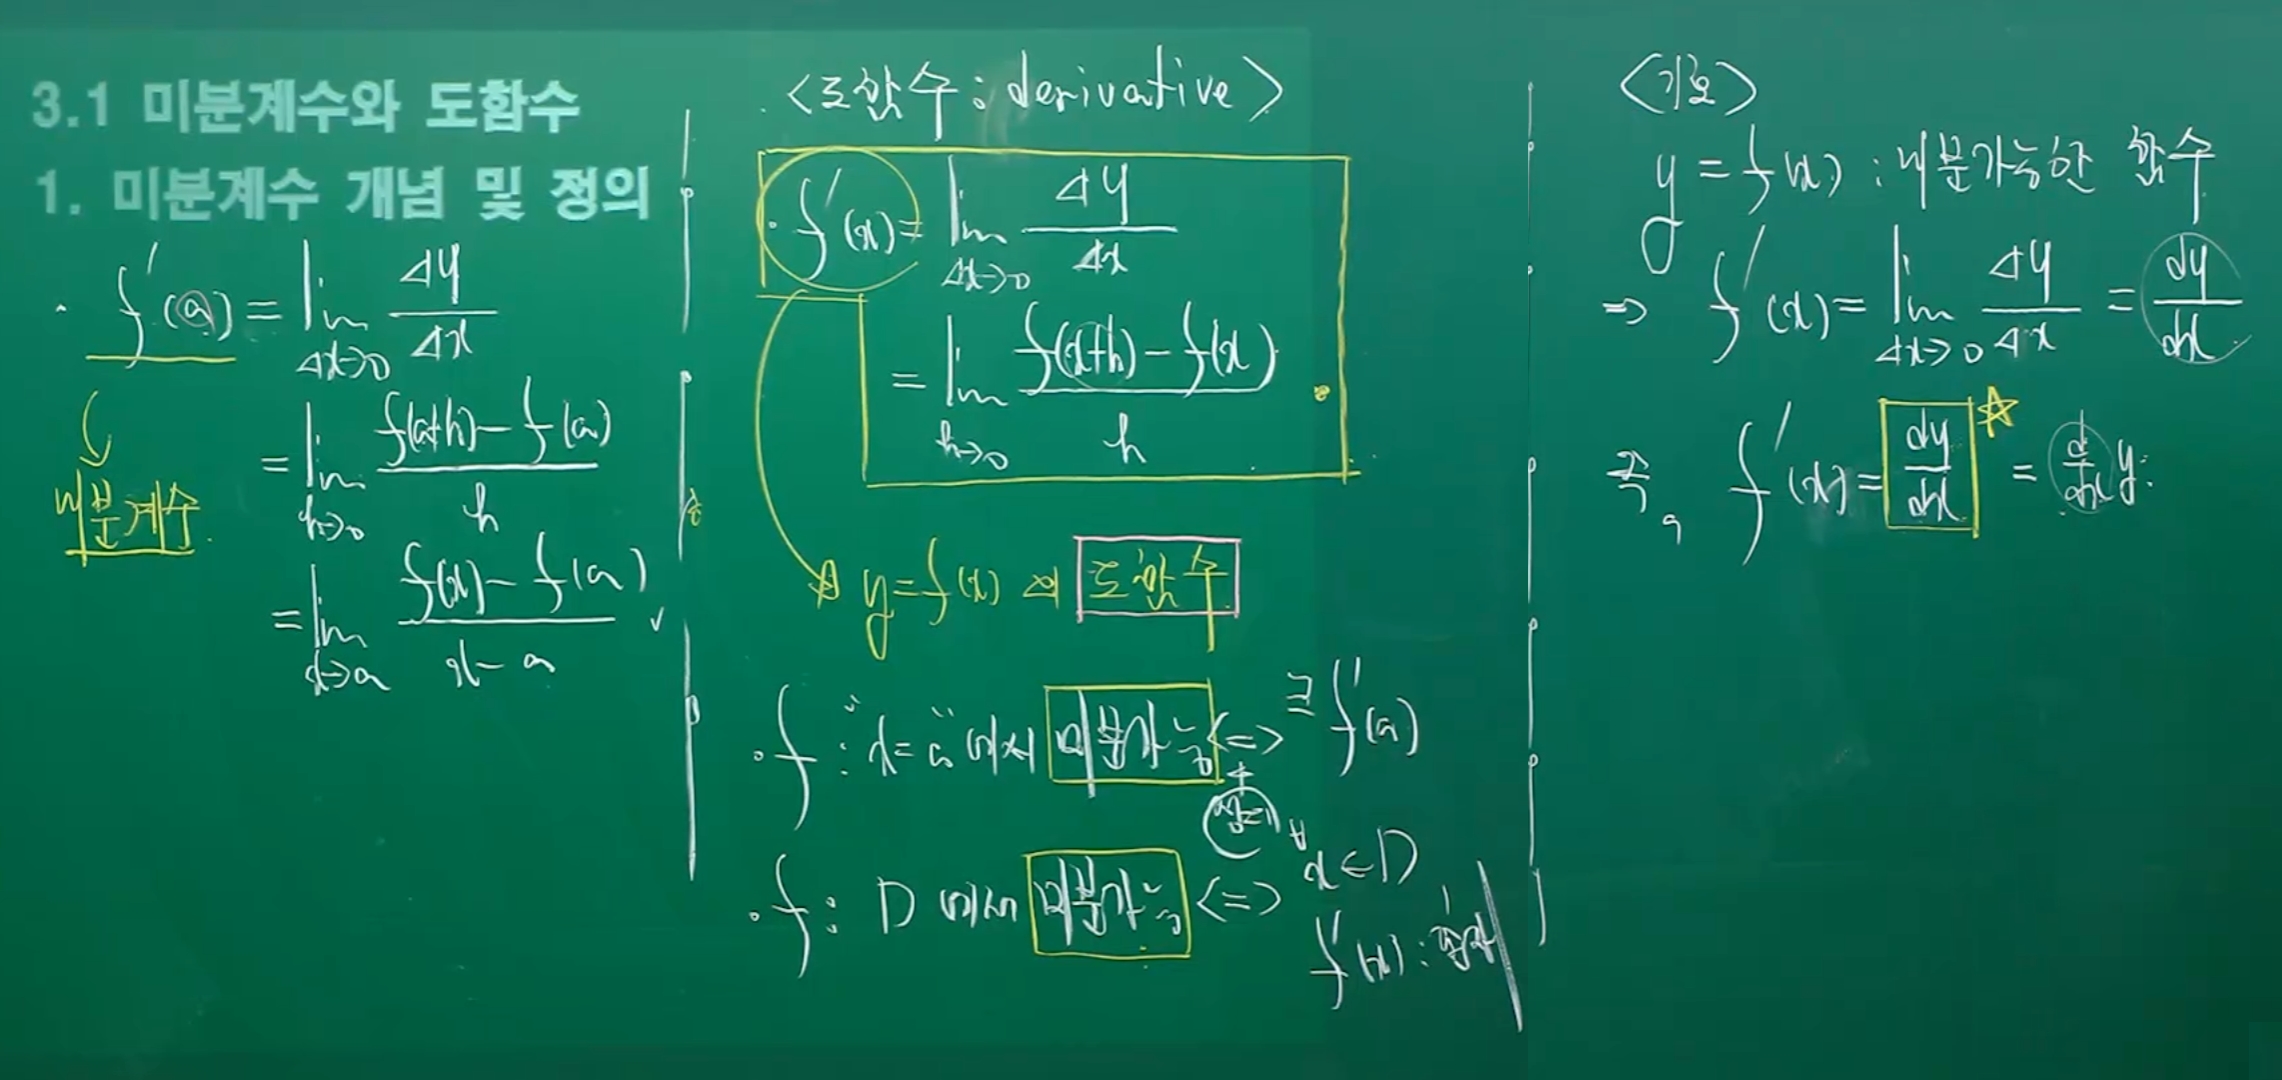 3.1 미분계수와 도함수
1. 미분계수 개념 및 정의
· f'(a) = lim Δx→0 Δy/Δx
= lim h→0 f(a+h) - f(a) / h
= lim x→a f(x) - f(a) / x - a
미분계수
<도함수 : derivative>
· f'(x) = lim Δx→0 Δy/Δx
= lim h→0 f(x+h) - f(x) / h
y = f(x) 의 도함수
· f : "x=a"에서 미분가능 <=> ∃ f'(a)
정의
· f : D 에서 미분가능 <=> ∀x∈D
f'(x) : 존재
<기호>
y = f(x) : 미분가능한 함수
⇒ f'(x) = lim Δx→0 Δy/Δx = dy/dx
즉, f'(x) = dy/dx ☆ = d/dx y.